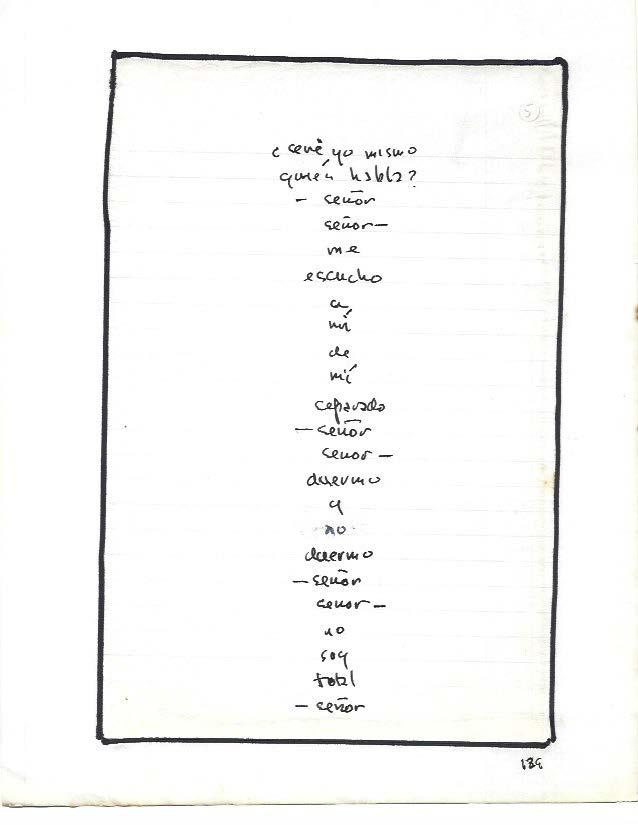 5
¿seré yo mismo
quién habla?
– señor
señor –
me
escucho
a
mí
de
mí
separado
– señor
señor –
duermo
y
no
duermo
– señor
señor –
no
soy
total
– señor
189